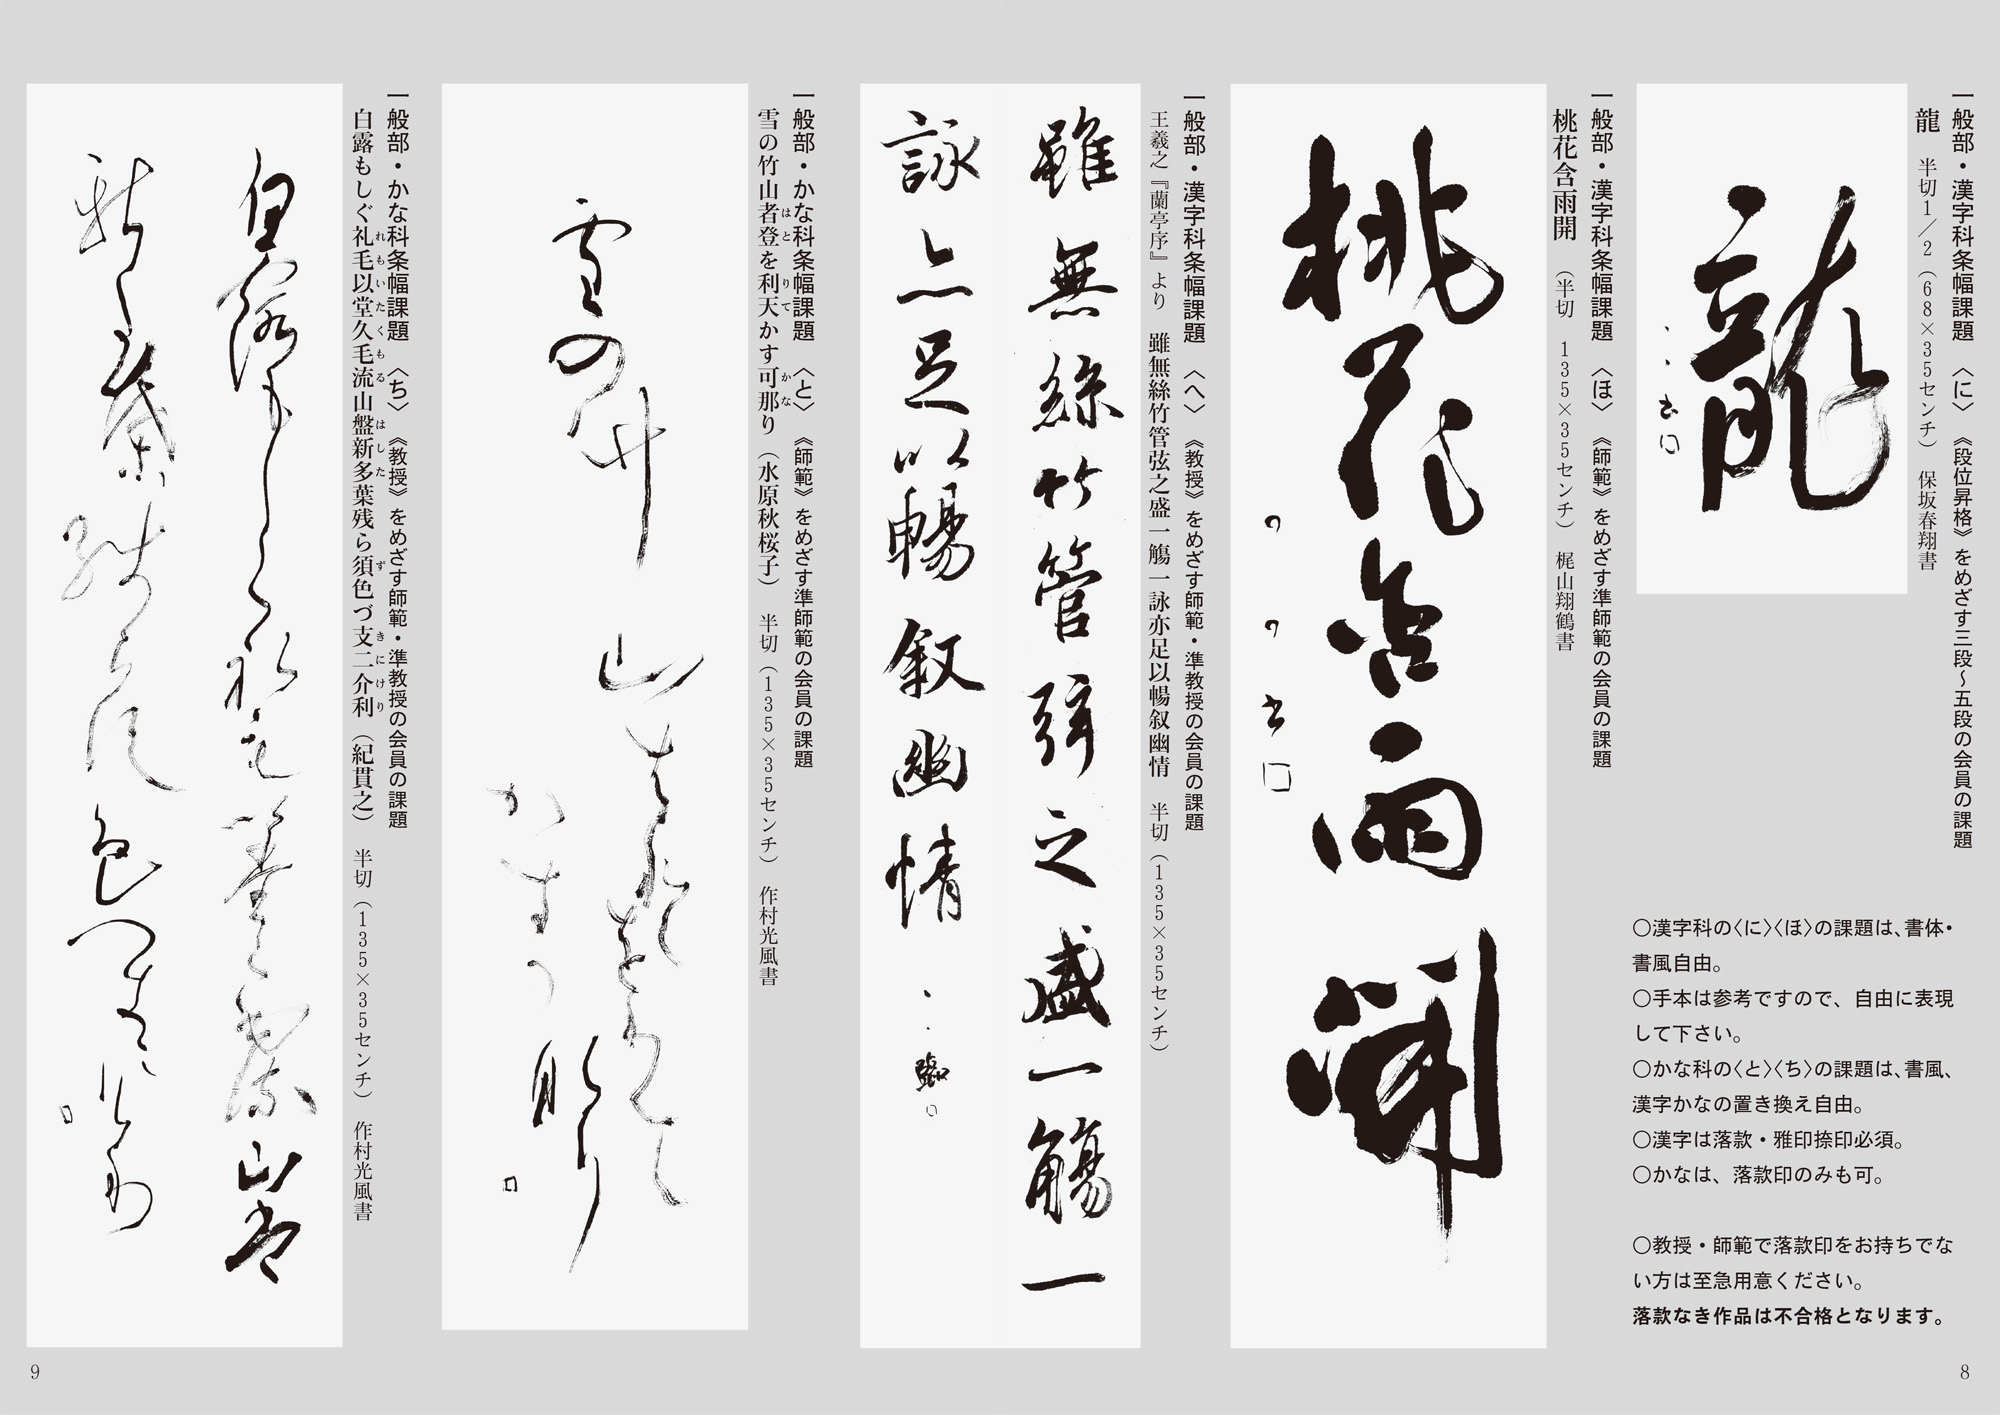 一般部・漢字科条幅課題　〈に〉　《段位昇格》をめざす三段〜五段の会員の課題
龍　半切1／2（68×35センチ）　保坂春翔書
龍
書
○漢字科の〈に〉〈ほ〉の課題は、書体・
書風自由。
○手本は参考ですので、自由に表現
して下さい。
○かな科の〈と〉〈ち〉の課題は、書風、
漢字かなの置き換え自由。
○漢字は落款・雅印捺印必須。
○かなは、落款印のみも可。
○教授・師範で落款印をお持ちでな
い方は至急用意ください。
落款なき作品は不合格となります。
一般部・漢字科条幅課題　〈ほ〉　《師範》をめざす準師範の会員の課題
桃花含雨開　（半切　135×35センチ）　梶山翔鶴書
桃花含雨開
書
一般部・漢字科条幅課題　〈へ〉　《教授》をめざす師範・準教授の会員の課題
王羲之『蘭亭序』より　雖無絲竹管弦之盛一觴一詠亦足以暢叙幽情　半切（135×35センチ）
雖無絲竹管弦之盛一觴一
詠亦足以暢叙幽情
臨
一般部・かな科条幅課題　〈と〉　《師範》をめざす準師範の会員の課題
雪の竹山者登を利天かす可那り（水原秋桜子）　半切（135×35センチ）　作村光風書
はとりてかな
雪の竹
山者登を利天
かす可
那り
一般部・かな科条幅課題　〈ち〉　《教授》をめざす師範・準教授の会員の課題
白露もしぐ礼毛以堂久毛流山盤新多葉残ら須色づ支二介利（紀貫之）　半切（135×35センチ）　作村光風書
れもいたくもるはしたずきにけり
白露もしぐ礼毛以堂久毛流山盤
新多葉残ら須色づ支二介利
8
9